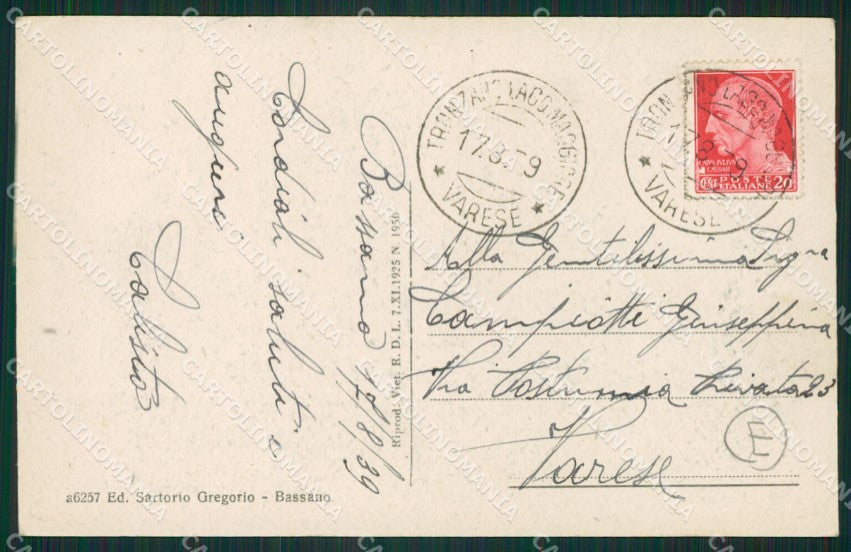 Bassano 17/8/39
Cordiali saluti e
auguri
Calisto
TRONZANO LAGO MAGGIORE
17.8.39
VARESE
TRONZANO LAGO MAGGIORE
17.8.39
VARESE
CAIVS IVLIVS
CAESAR
POSTE
ITALIANE 20
Alla Gentilissima Sig.ra
Campiotti Giuseppina
Via Privata 23
Varese
E
Riprod. Viet. R. D. L. 7.XI.1925 N. 1950
a6257 Ed. Sartorio Gregorio - Bassano
CARTOLINOMANIA